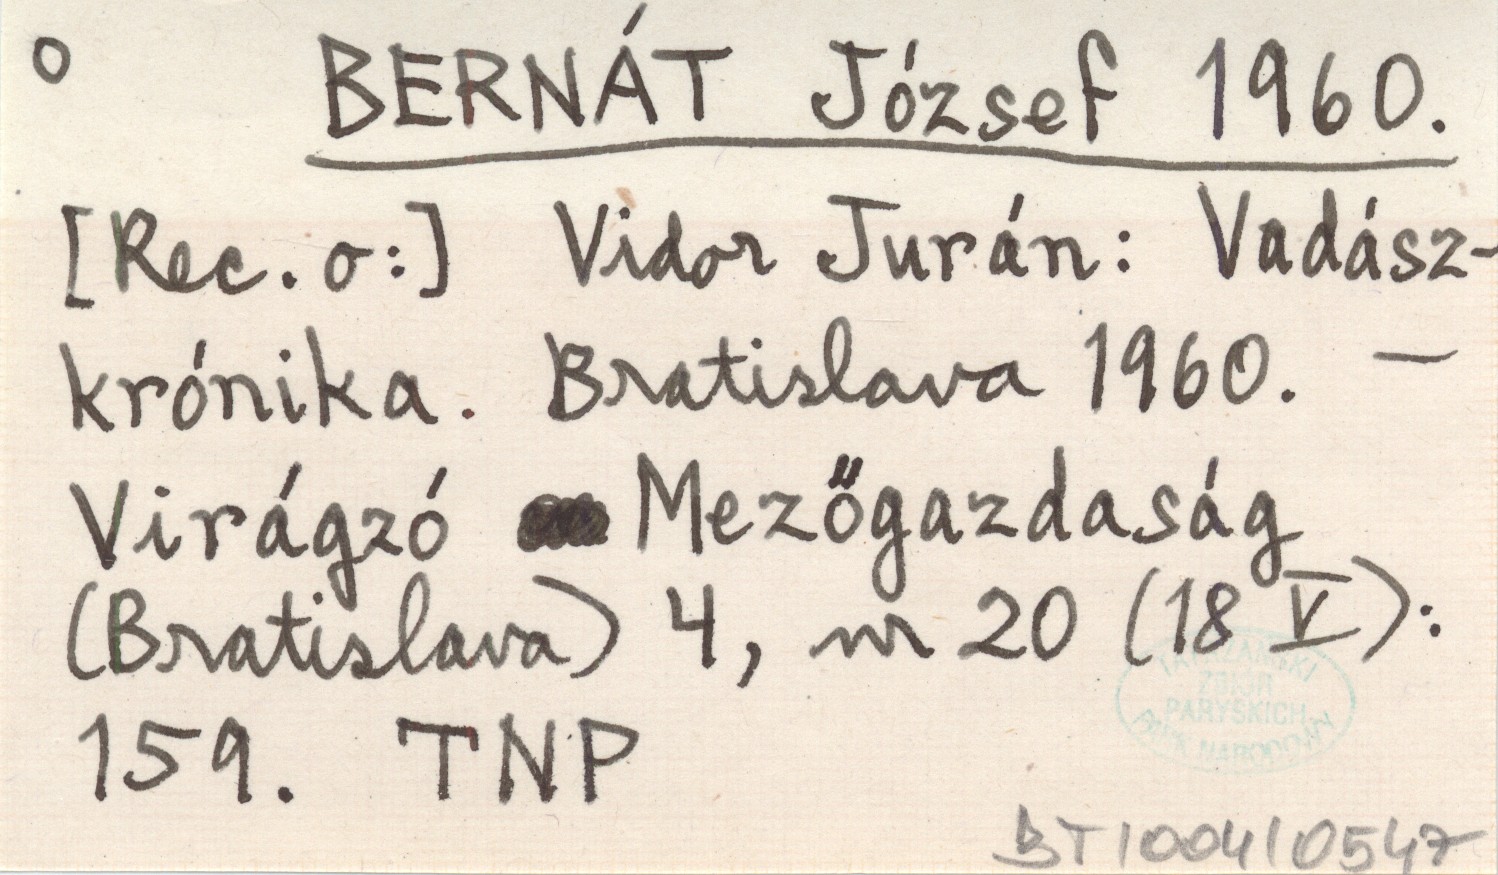 o BERNÁT József 1960.
[Rec. o:] Vidor Jurán: Vadász-
krónika. Bratislava 1960. —
Virágzó Mezőgazdaság
(Bratislava) 4, nr 20 (18 V):
159. TNP
TATRZAŃSKI
ZBIÓR
PARYSKICH
PARK NARODOWY
BT/004/0547